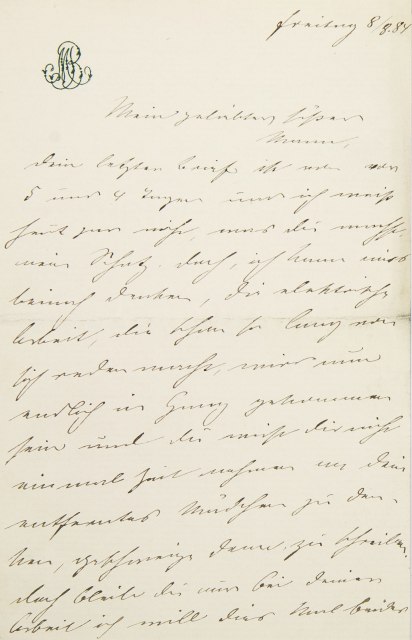 Freitag 8/8.84
MB
Mein geliebter süßer
Mann,
Dein letzter Brief ist nun von vor
5 und 4 Tagen und ich weiß
heut gar nicht, was Du machst,
mein Schatz. Doch, ich kann mir's
beinah denken, die elektrische
Arbeit, die schon so lang von
sich reden macht, wird nun
endlich in Gang gekommen
sein und Du wirst Dir nicht
einmal Zeit nehmen an Dein
entferntes Mädchen zu den-
ken, geschweige denn zu schreiben.
Doch bleibe Du nur bei Deiner
Arbeit ich will dies Mal beides